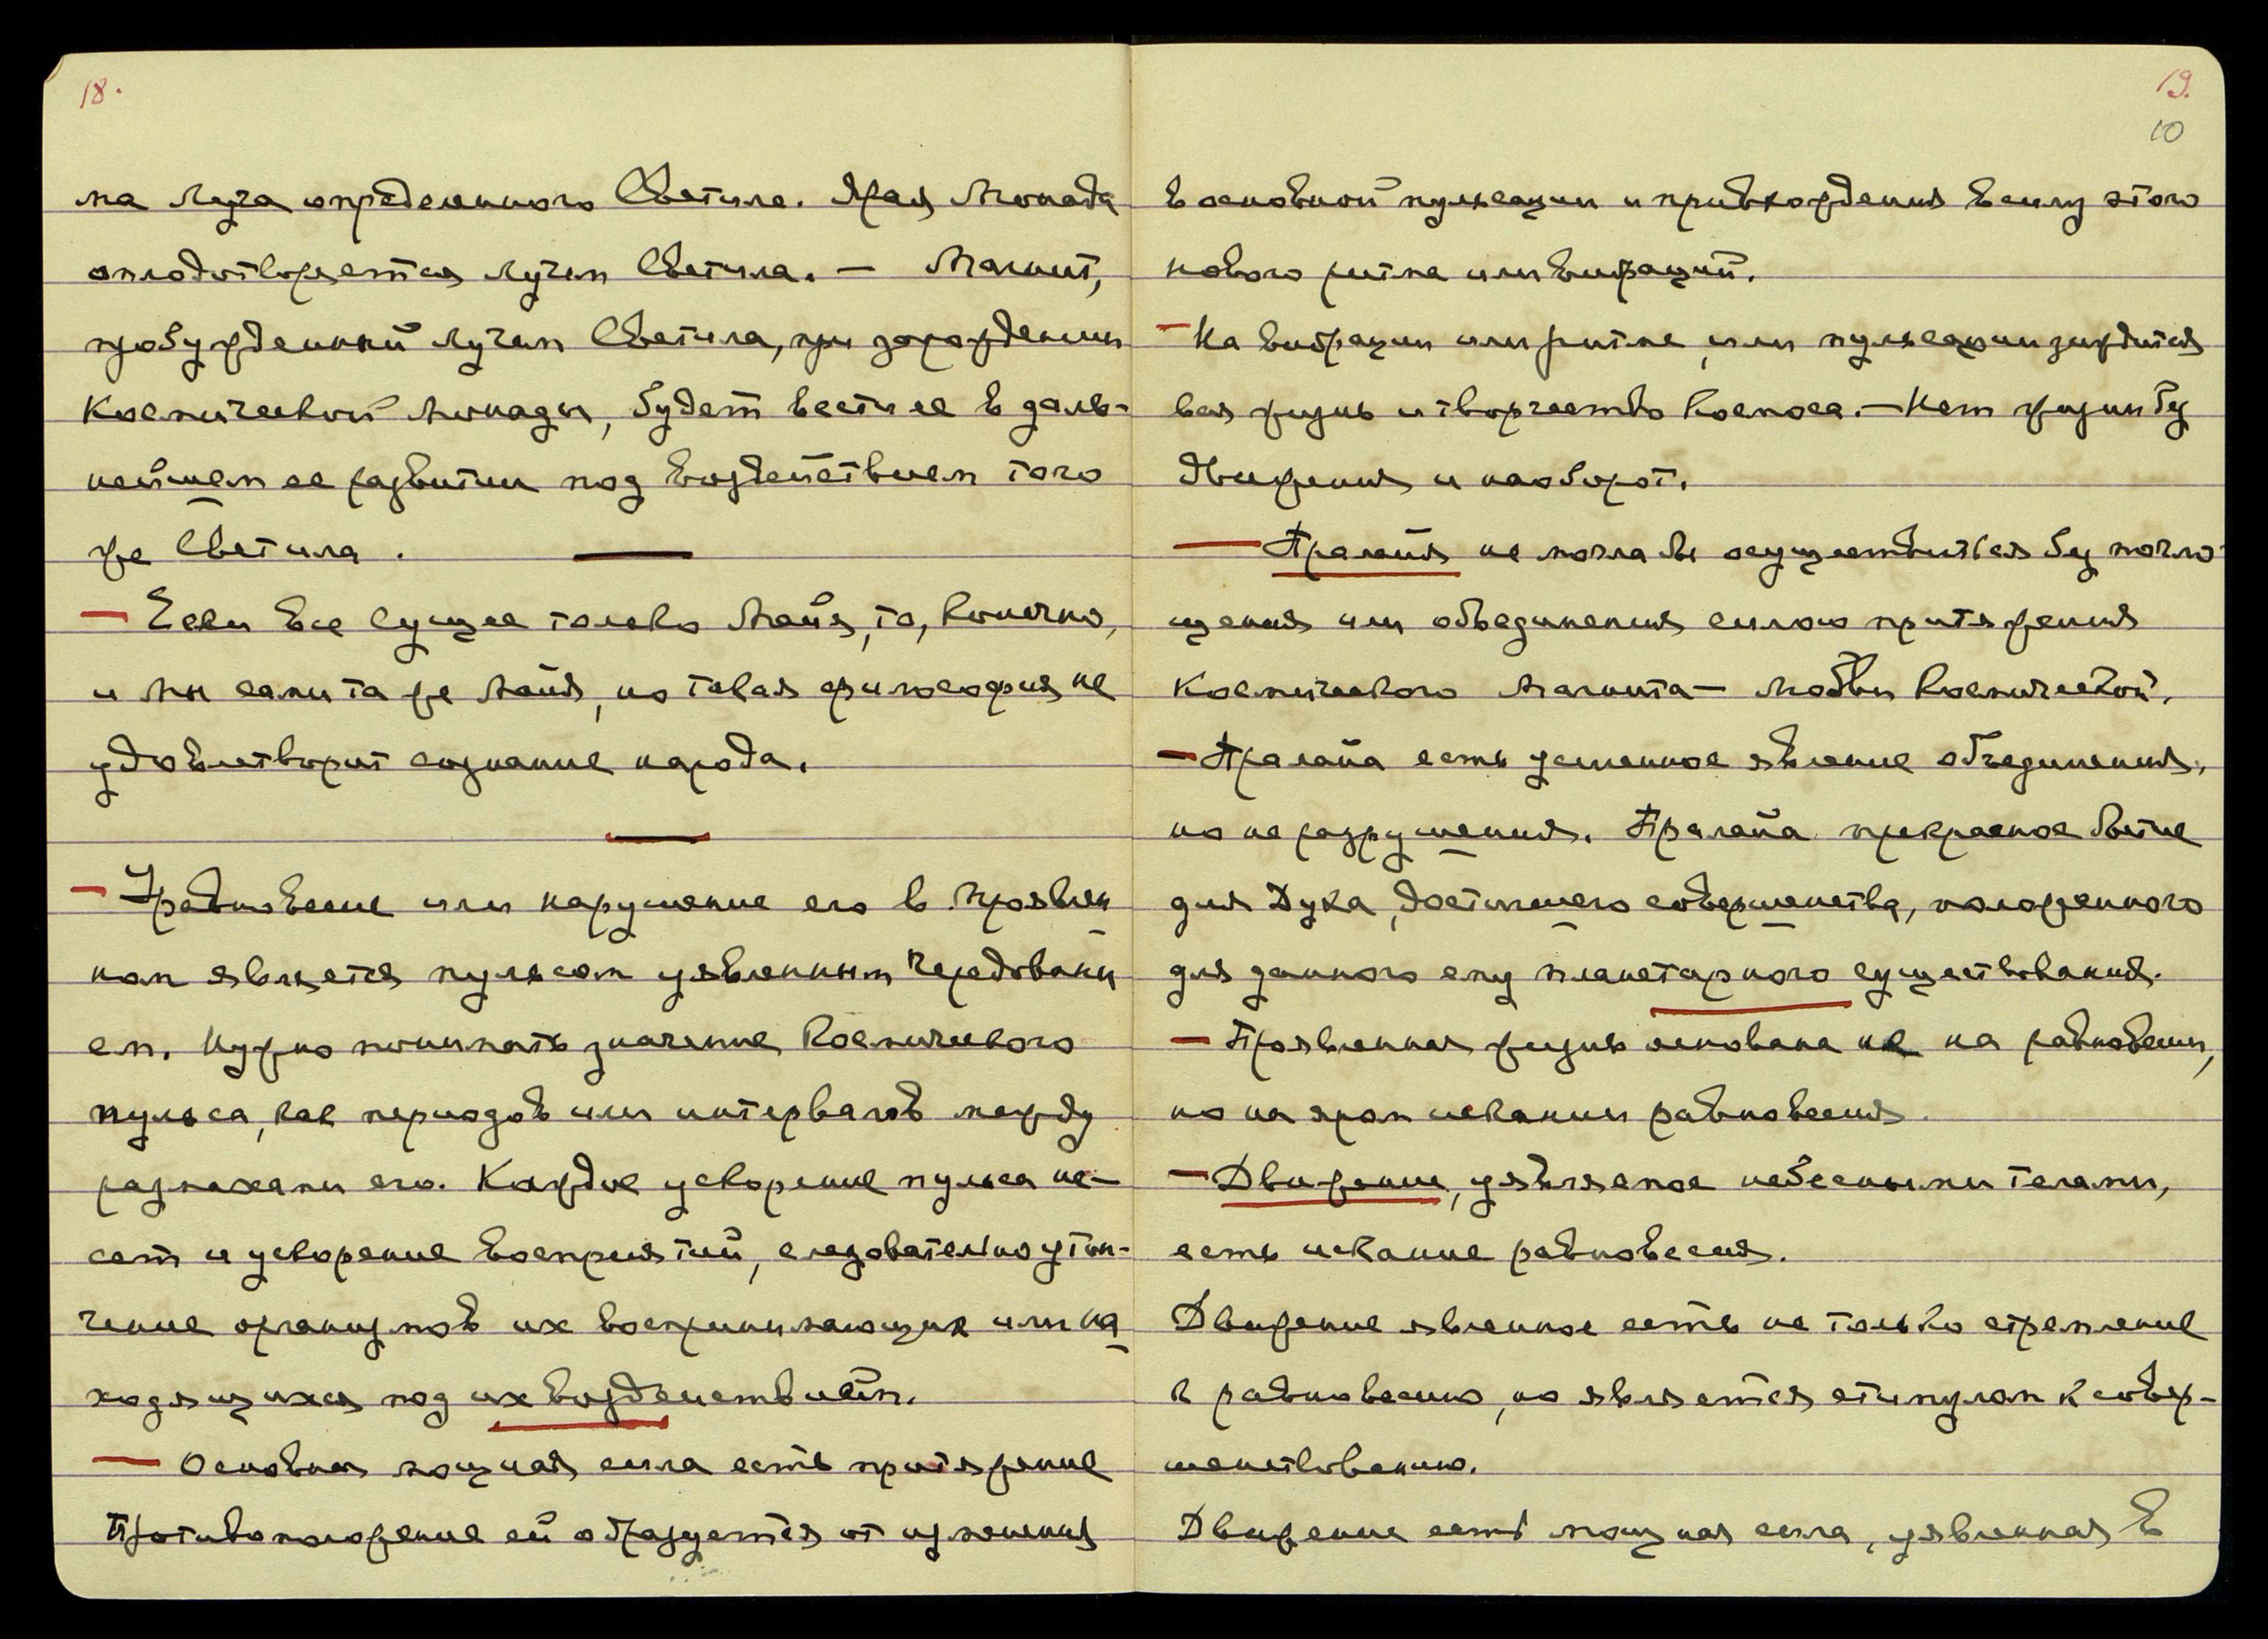 18.
ма Луча определенного Светила. Ярая Монада
оплодотворяется лучем Светила. — Магнит,
пробужденный лучем Светила, при зарождении
Космической Монады, будет вести ее в даль-
нейшем ее развитии под воздействием того
же Светила.
— Если Все Сущее только Майя, то, конечно,
и мы сами та же Майя, но такая философия не
удовлетворит сознание народа.
— Уравновесие или нарушение его в Проявлен
ном является пульсом уявленным Чередовани
ем. Нужно понимать значение Космического
пульса, как периодов или интервалов между
размахами его. Каждое ускорение пульса не-
сет и ускорение восприятий, следовательно утон-
чение организмов их воспринимающих или на
ходящихся под их воздействием.
— Основная мощная сила есть притяжение
Противоположение ей образуется от изменения
19.
10
в основной пульсации и привхождения в силу этого
нового ритма или вибраций.
— На вибрации или ритме, или пульсации зиждится
вся жизнь и творчество Космоса. — Нет жизни без
движения и наоборот.
— Пралайя не могла бы осуществиться без погло
щения или объединения силою притяжения
Космического Магнита — Любви Космической.
— Пралайа есть усиленное явление объединения,
но не разрушения. Пралайа прекрасное бытие
для Духа, достигшего совершенства, положенного
для данного ему планетарного существования.
— Проявленная жизнь основана не на равновесии,
но на яром искании равновесия.
— Движение, уявляемое небесными телами,
есть искание равновесия.
Движение явленное есть не только стремление
к равновесию, но является стимулом к совер-
шенствованию.
Движение есть мощная сила, уявленная в